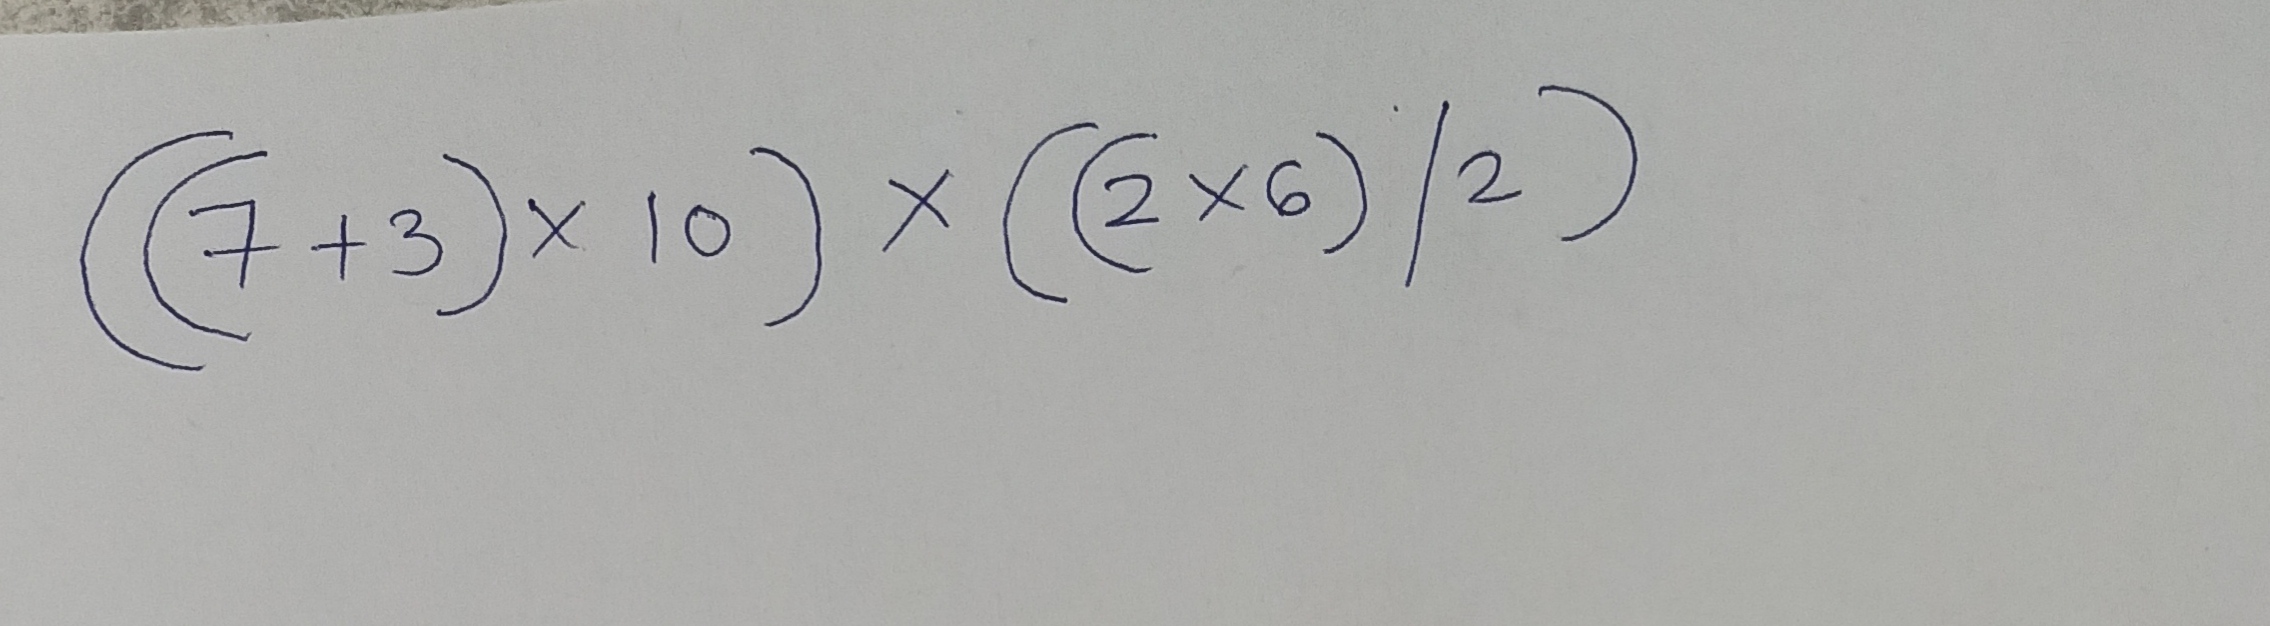 ((7+3)×10)×((2×6)/2)